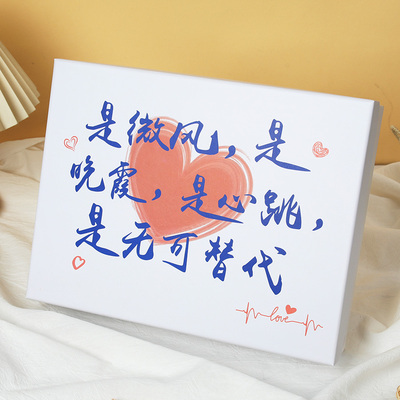 是微风，是
晚霞，是心跳，
是无可替代
love